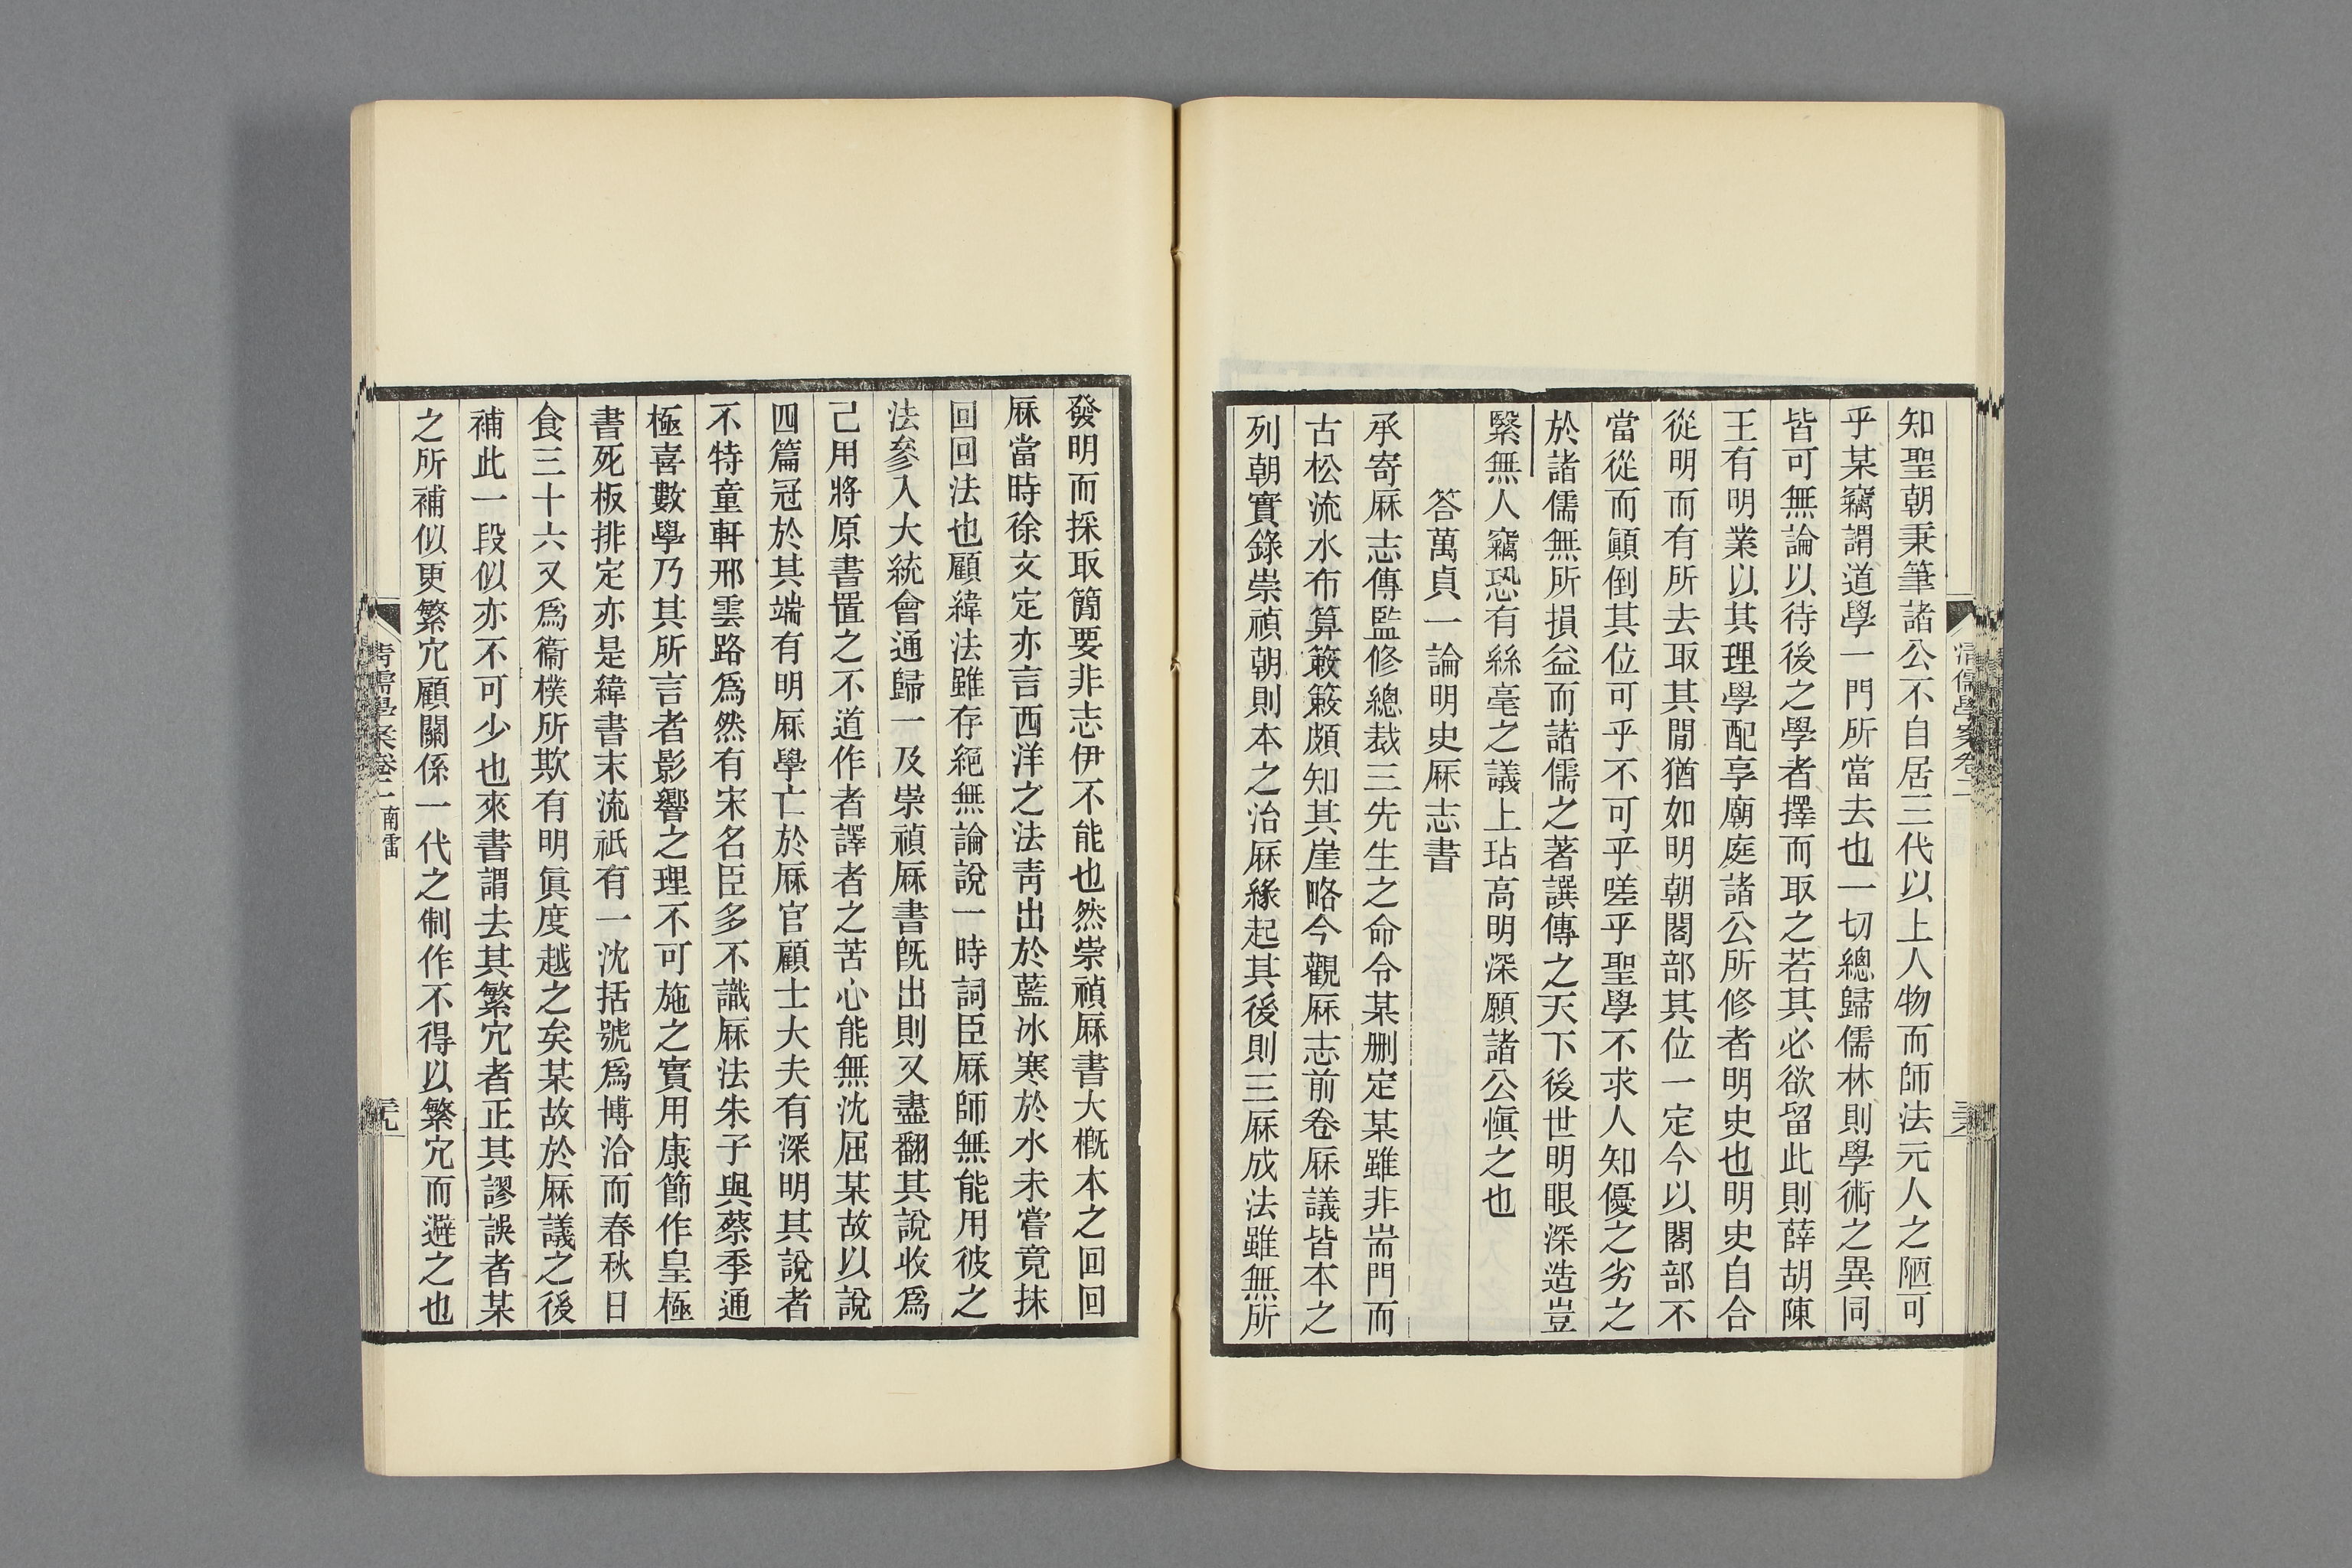 知聖朝秉筆諸公不自居三代以上人物而師法元人之陋可
乎某竊謂道學一門所當去也一切總歸儒林則學術之異同
皆可無論以待後之學者擇而取之若其必欲留此則薛胡陳
王有明業以其理學配享廟庭諸公所修者明史也明史自合
從明而有所去取其閒猶如明朝閣部其位一定今以閣部不
當從而顚倒其位可乎不可乎嗟乎聖學不求人知優之劣之
於諸儒無所損益而諸儒之著譔傳之天下後世明眼深造豈
緊無人竊恐有絲毫之議上玷高明深願諸公愼之也
答萬貞一論明史厤志書
承寄厤志傳監修總裁三先生之命令某刪定某雖非耑門而
古松流水布算簌簌頗知其崖略今觀厤志前卷厤議皆本之
列朝實錄崇禎朝則本之治厤緣起其後則三厤成法雖無所
清儒學案卷二
發明而採取簡要非志伊不能也然崇禎厤書大槪本之回回
厤當時徐文定亦言西洋之法靑出於藍冰寒於水未嘗竟抹
回回法也顧緯法雖存絕無論說一時詞臣厤師無能用彼之
法參入大統會通歸一及崇禎厤書旣出則又盡翻其說收爲
己用將原書置之不道作者譯者之苦心能無沈屈某故以說
四篇冠於其端有明厤學亡於厤官顧士大夫有深明其說者
不特童軒邢雲路爲然有宋名臣多不識厤法朱子與蔡季通
極喜數學乃其所言者影響之理不可施之實用康節作皇極
書死板排定亦是緯書末流祇有一沈括號爲博洽而春秋日
食三十六又爲衞樸所欺有明眞度越之矣某故於厤議之後
補此一段似亦不可少也來書謂去其繁宂者正其謬誤者某
之所補似更繁宂顧關係一代之制作不得以繁宂而避之也
清儒學案卷二 南雷